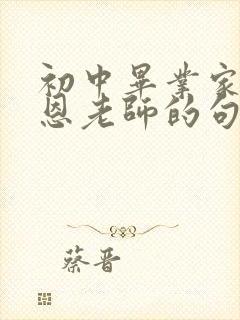 初中畢業家
恩老師的句
蔡晋